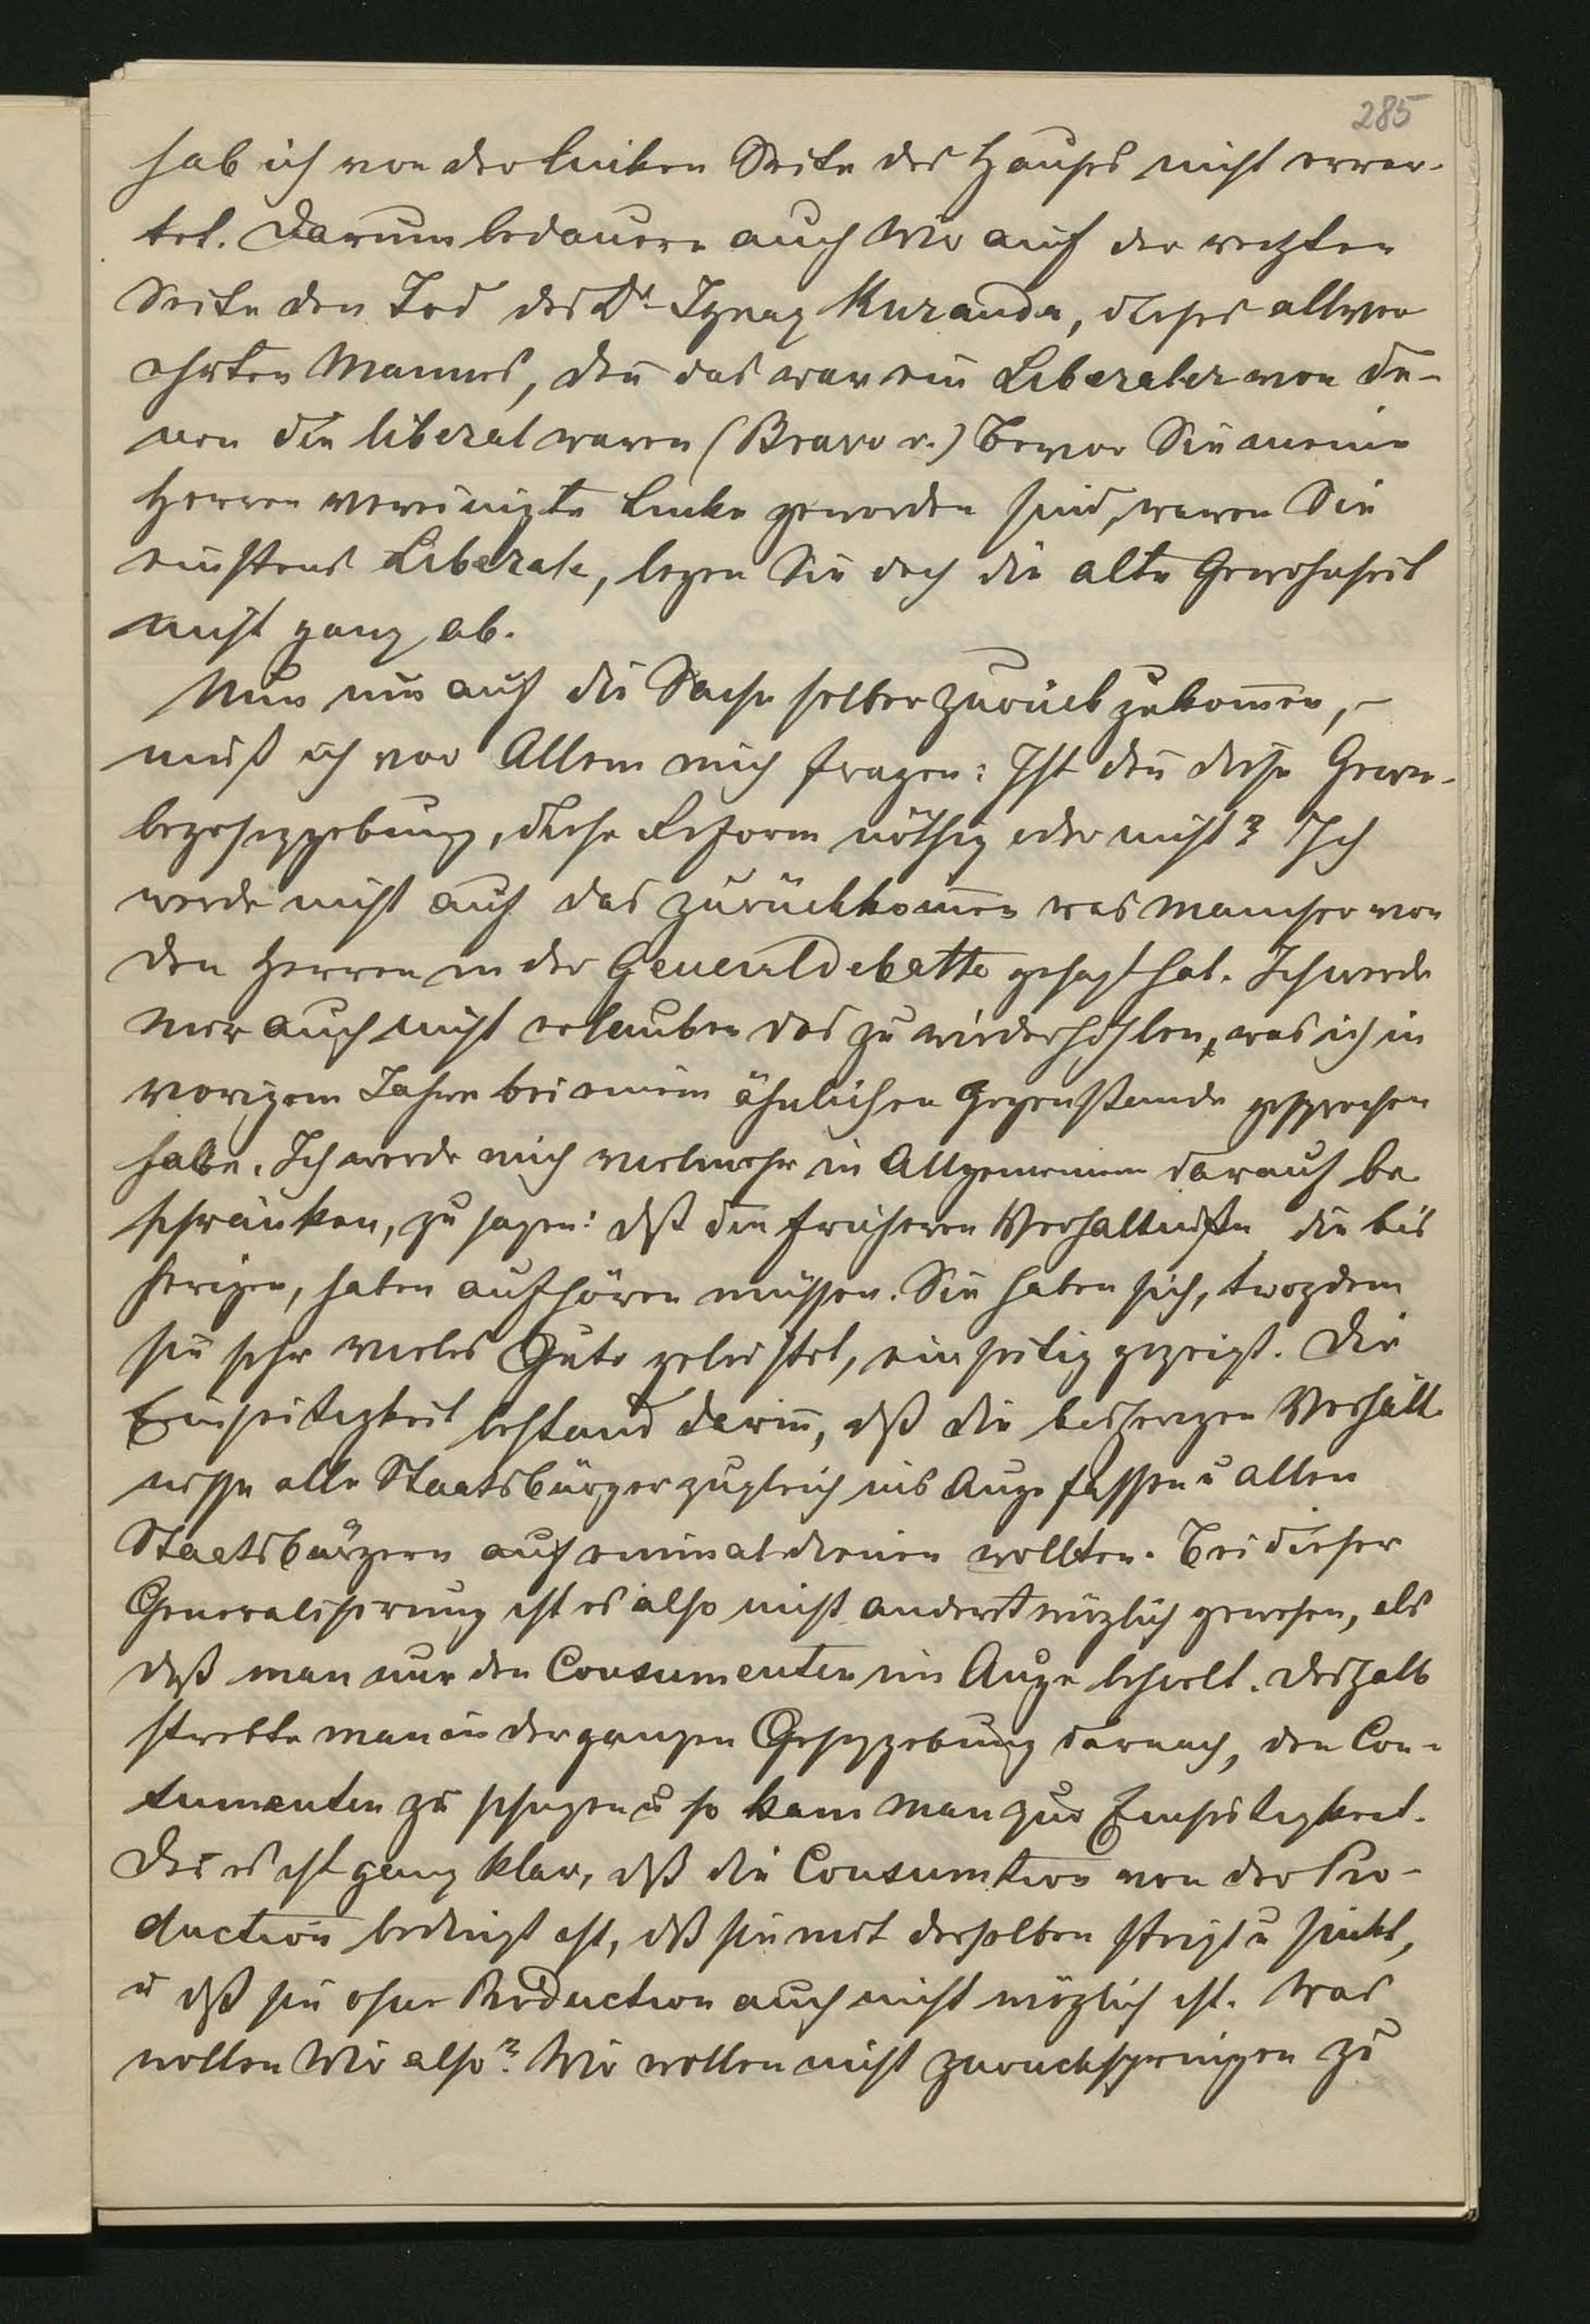 285
hab ich von der linken Seite des Hauses nicht erwar-
tet. Darum bedauern auch Wir auf der rechten
Seite den Tod des Dr Ignaz Kuranda, dieses allver
ehrten Mannes, den̄ das war ein Liberaler von de-
nen die liberal waren (Bravo r.) Bevor Sie meine
Herren vereinigte Linke geworden sind, waren Sie
einstens Liberale, legen Sie doch die alte Gewohnheit
nicht ganz ab.
Nun um auf die Sache selber zurück zukom̄en, –
muß ich vor Allem mich fragen: Ist den̄ diese Gewer-
begesezgebung, diese Reform nöthig oder nicht? Ich
werde nicht auf das zurückkom̄en was mancher von
den Herren in der Generaldebatte gesagt hat. Ich werde
mir auch nicht erlauben das zu wiederhohlen, was ich in
vorigem Jahre bei einem ähnlichen Gegenstande gesprochen
habe. Ich werde mich vielmehr im Allgemeinen darauf be
schränken, zu sagen: dß die früheren Verhältniße die bis
herigen, haben aufhören müssen. Sie haben sich, trozdem
sie sehr vieles Gute geleistet, einseitig gezeigt. Die
Einseitigkeit bestand darin̄, dß die bisherigen Verhält-
nisse alle Staatsbürger zugleich ins Auge fassen u allen
Staatsbürgern auf einmal dienen wollten. Bei dieser
Generalisierung ist es also nicht anderst möglich gewesen, als
daß man nur den Consumenten im Auge behielt. Deshalb
strebte man in der ganzen Gesezgebung darnach, den Con-
sumenten zu schüzen u so kam man zur Einseitigkeit.
Den̄ es ist ganz klar, dß die Consumtion von der Pro-
duction bedingt ist, dß sie mit derselben steigt u sinkt,
u dß sie ohne Production auch nicht möglich ist. Was
wollen Wir also? Wir wollen nicht zurückspringen zu